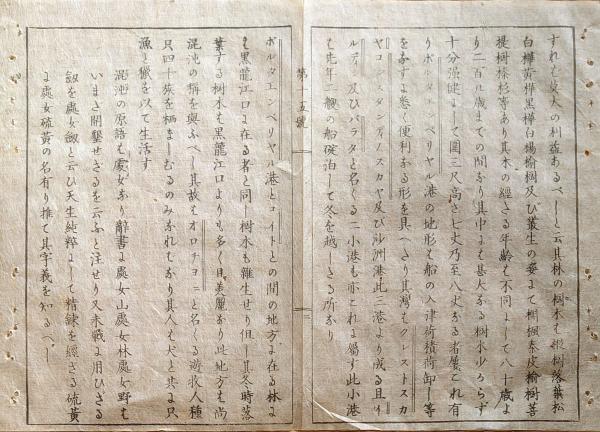 すれむ莫大の利益あるべしと云其林の樹木も椴樹落葉松
白樺黄樺黒樺白楊楡櫚及び叢生の姿まて櫚楓秦皮楡樹菩
提樹榛杉等あり其木の經さる年齡も不同して八十歳よ
り二百歳までの間あり其中にも甚大なる樹木少からず
十分强健して圍三尺高さ七丈乃至八丈なる者屢これ有
りボルタエンペリヤル港の地形も船の入津荷積荷卸し等
をなすに悉く便利なる形を具へたり其灣もクレストスカ
ヤコンスタンチノスカヤ及び沙洲港此三港より成る且イ
ルチン及びバラタと名くる二小港も亦これに屬す此小港
も先年二艘の船碇泊して冬を越しさる所なり
第十五號
ボルタエンペリヤル港とコイトとの間の地方に在る林に
も黒龍江口に在る者と同し樹木も雜生せり但し其冬時落
葉する樹木も黒龍江口よりも多く且美麗なり此地方も尚
混沌の稱を與ふべし其故もオロチヨニと名くる遊牧人種
只四十族を栖ましむるのみなれむなり其人も犬と共に只
漁と獵を以て生活す
混沌の原語も處女なり辭書に處女山處女林處女野も
いまさ開墾せざるを云ふと注せり又未戰に用ひざる
劔を處女劔と云ひ天生純粹して精錬を經ざる硫黄
に處女硫黄の名有り推て其字義を知るべし